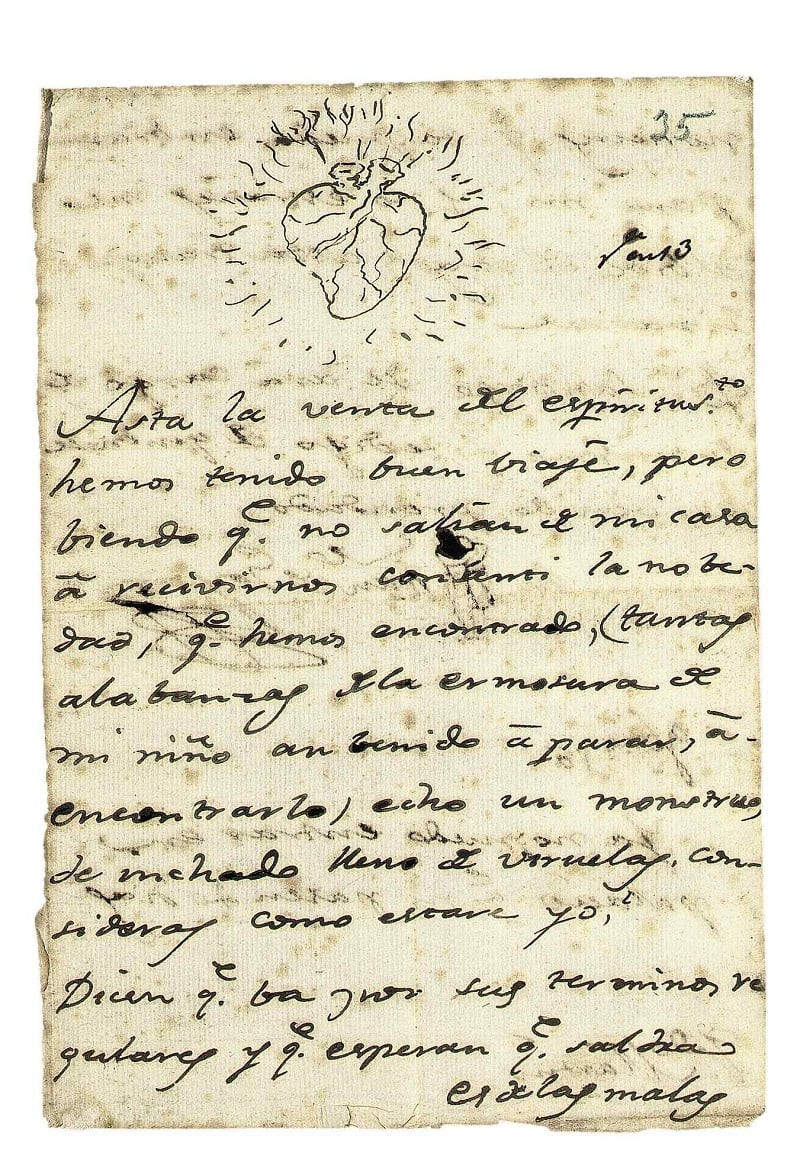 25
Asta la venta del espiritus.to
hemos tenido buen viaje, pero
biendo q.e no salian de mi casa
â recivirnos consenti la nobe-
dad, q.e hemos encontrado, (tantas
alabanzas de la ermosura de
mi niño an benido â parar, â-
encontrarlo) echo un monstruo,
de inchado lleno de viruelas. con-
sideras como estare yo,
Dicen q.e ba por sus terminos re
gulares y q.e esperan q.e saldra
es de las malas